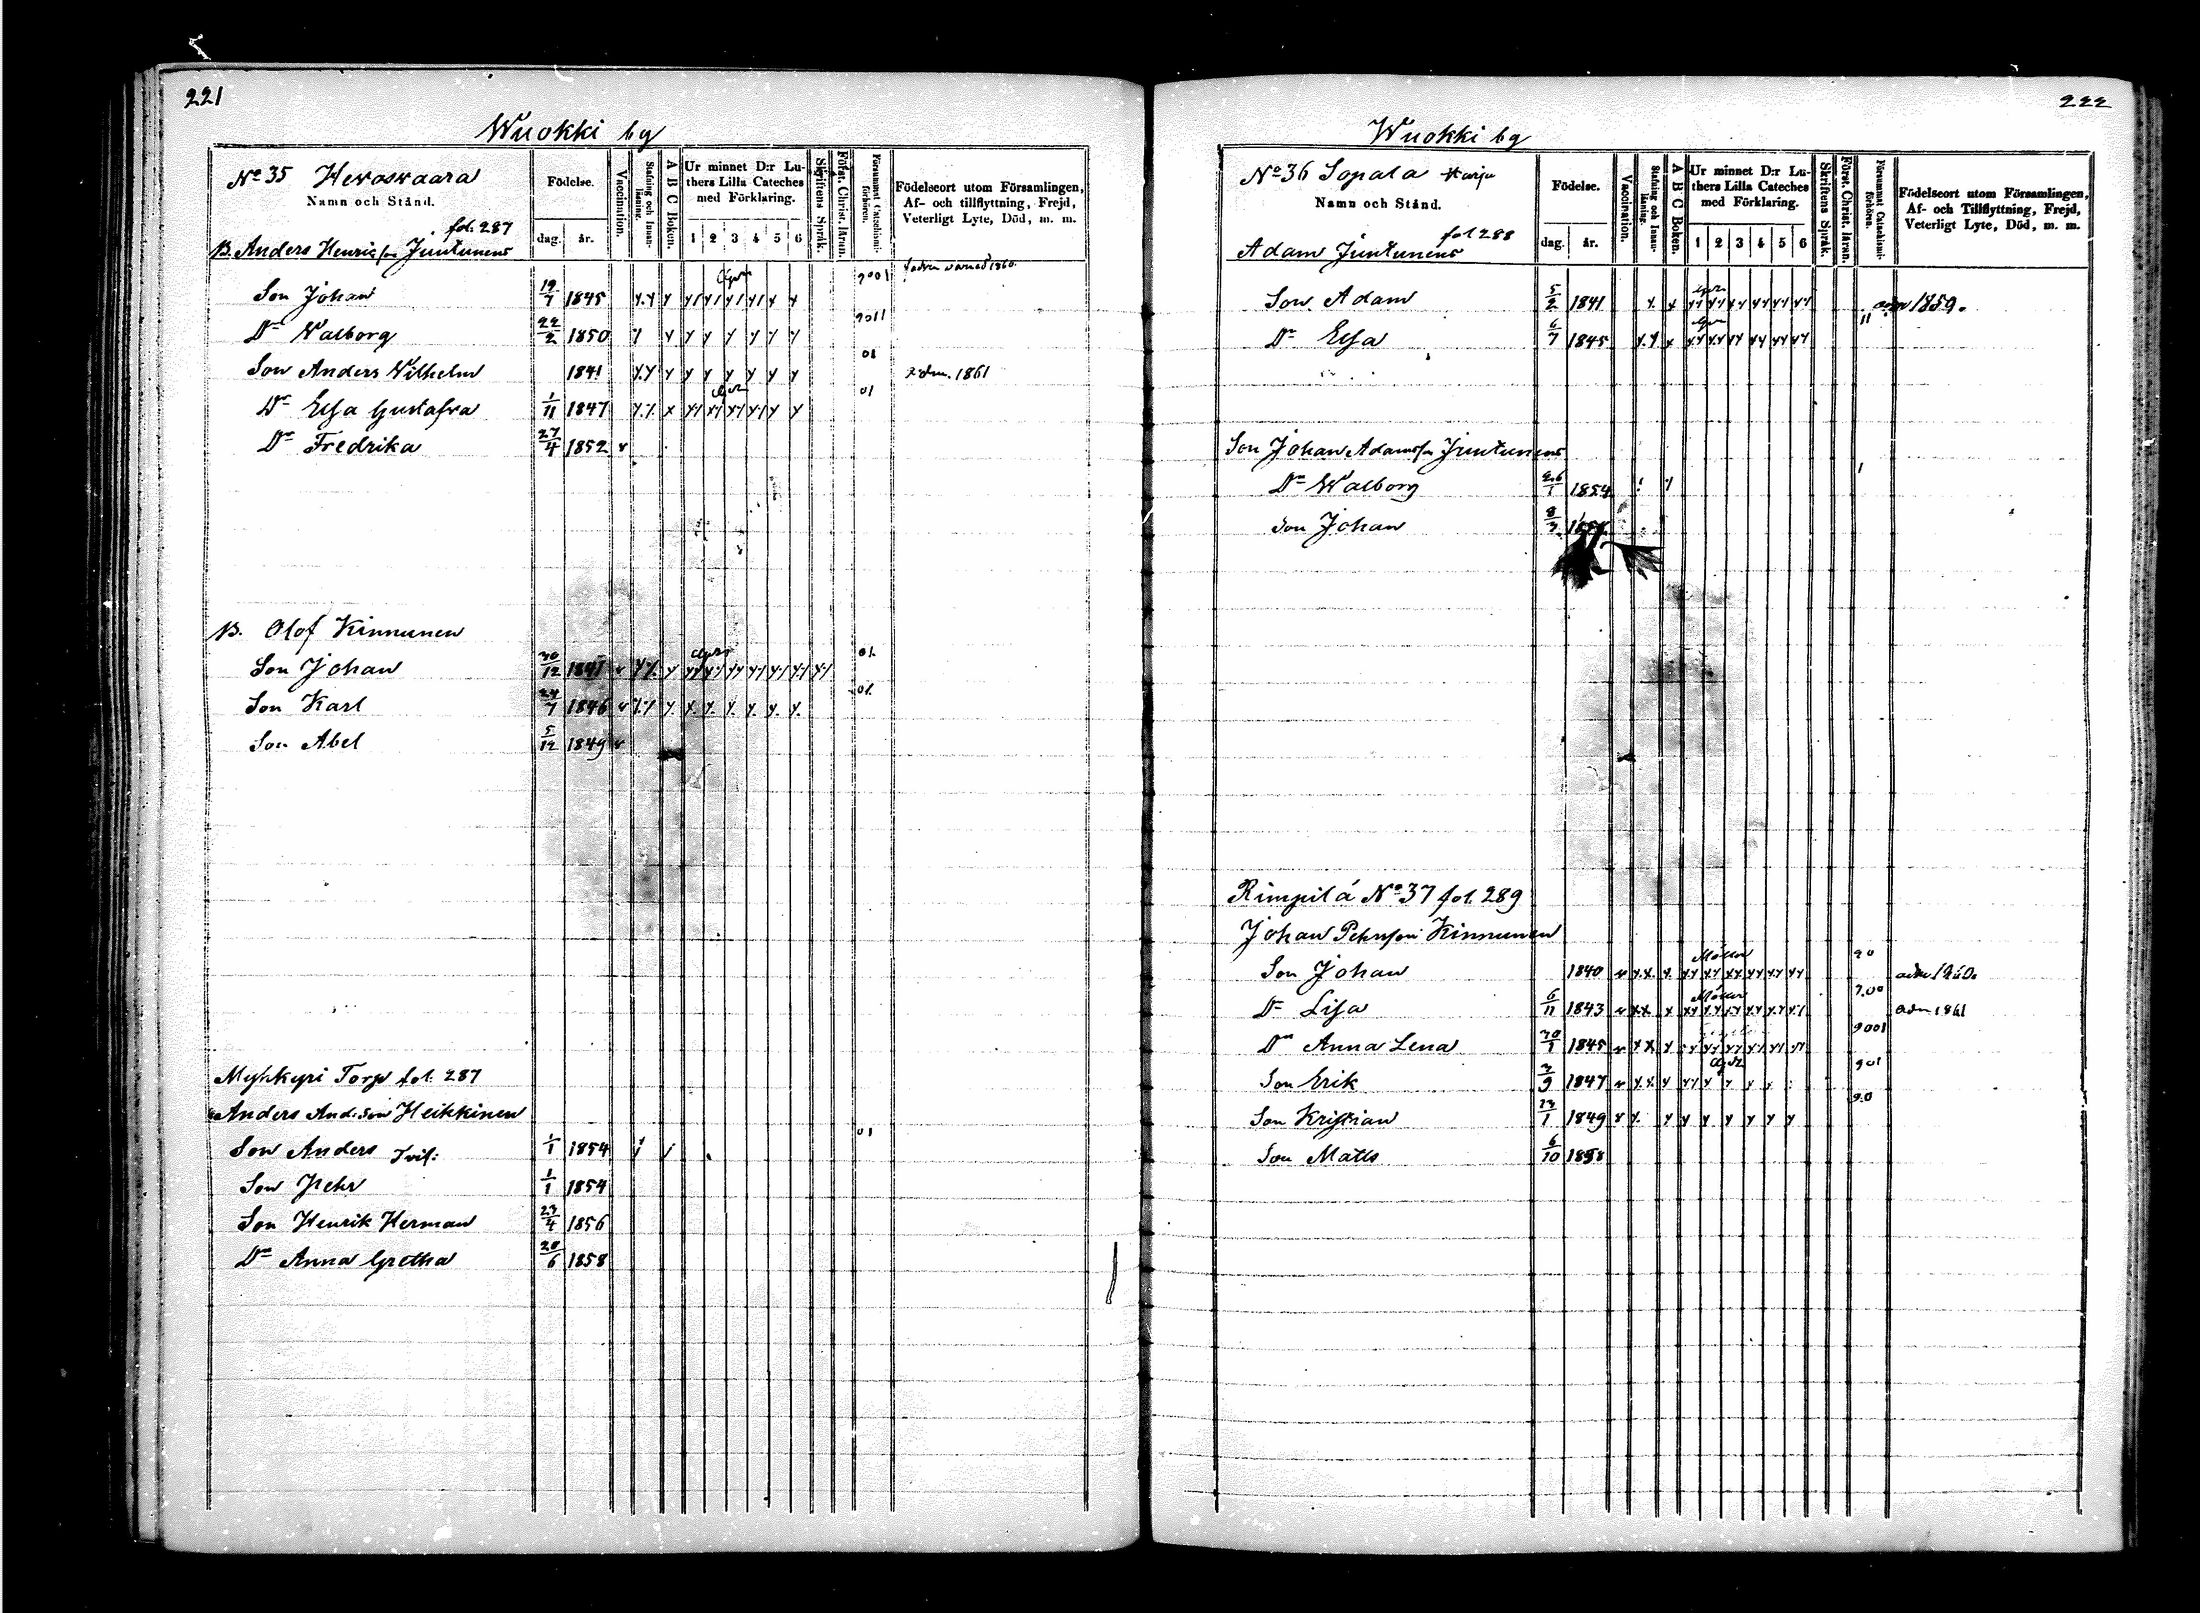 221
Wuokki by
No 35 Hevosvaara
Namn och Stånd.
fol. 287
Födelse.
dag. år.
Vaccination.
Stafning och Innanläsning.
A B C Boken.
Ur minnet D:r Luthers Lilla Cateches med Förklaring.
1 2 3 4 5 6
Skriftens Språk.
Fört. Christ. läran.
Försummat Catechismiförhören.
Födelseort utom Församlingen,
Af- och tillflyttning, Frejd,
Veterligt Lyte, Död, m. m.
B. Anders Henricsson Juntunens
Son Johan 19/7 1845 9001 1860.
Dr Walborg 22/2 1850 9011
Son Anders Wilhelm 1841 01 adm. 1861
Dr Elsa Gustafva 1/11 1847 01
Dr Fredrika 27/4 1852 v
B. Olof Kinnunen
Son Johan 30/12 1841 v 01.
Son Karl 24/7 1846 v 01.
Son Abel 5/12 1849 v
Myhkyri Torp fol. 287
Anders And:son Heikkinen
Son Anders Tvil: 1/1 1854 01
Son Pehr 1/1 1854
Son Henrik Herman 23/4 1856
Dr Anna Gretha 28/6 1858
222
Wuokki by
No 36 Sopala Harju
Namn och Stånd.
fol 288
Födelse.
dag. år.
Vaccination.
Stafning och Innanläsning.
A B C Boken.
Ur minnet D:r Luthers Lilla Cateches med Förklaring.
1 2 3 4 5 6
Skriftens Språk.
Först. Christ. läran.
Försummat Catechismiförhören.
Födelseort utom Församlingen,
Af- och Tillflyttning, Frejd,
Veterligt Lyte, Död, m. m.
Adam Juntunens
Son Adam 5/2 1841 adm 1859.
Dr Elsa 6/7 1845 11
Son Johan Adamsson Juntunens
Dr Walborg 26/1 1854 1
Son Johan
Rimpilä No 37 fol. 289
Johan Pehrsson Kinnunen
Son Johan 1840 v 90 adm 1860.
Dr Lisa 6/11 1843 v adm 1861
Dr Anna Lena 30/1 1845 v 9001
Son Erik 3/9 1847 v 901
Son Kristian 13/1 1849 v 90
Son Matts 6/10 1858